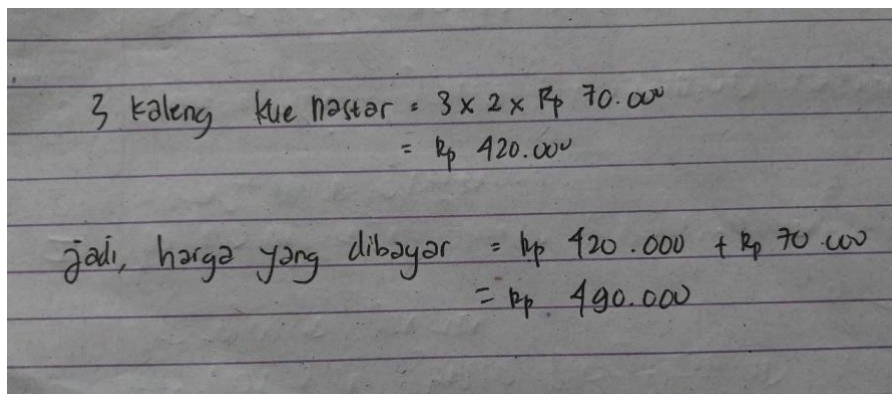 3 kaleng kue nastar = 3 x 2 x Rp 70.000
= Rp 420.000
jadi, harga yang dibayar = Rp 420.000 + Rp 70.000
= Rp. 490.000